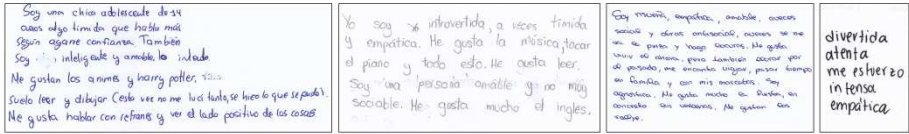 Soy una chica adolescente de 14
años algo timida que habla más
según agarre confianza. También
Soy inteligente y amable, lo intento
Me gustan los animes y harry potter,
Suelo leer y dibujar (esta vez no me lucí tanto, se hizo lo que se pudo).
Me gusta hablar con refranes y ver el lado positivo de las cosas
Yo soy introvertida, a veces tímida
y empática. Me gusta la música, tocar
el piano y todo esto. Me gusta leer.
Soy una persona amable y no muy
sociable. Me gusta mucho el ingles.
Soy empática, amable, aveces
social y otras antisocial, aveces se me
va la pinza y hago locuras. Me gusta
vivir el ahora, pero también
el pasado, me encanta viajar, pasar tiempo
en familia y con mis mascotas. Soy
agnóstica. Me gusta mucho la
Me gustan los
divertida
atenta
me esfuerzo
intensa
empática